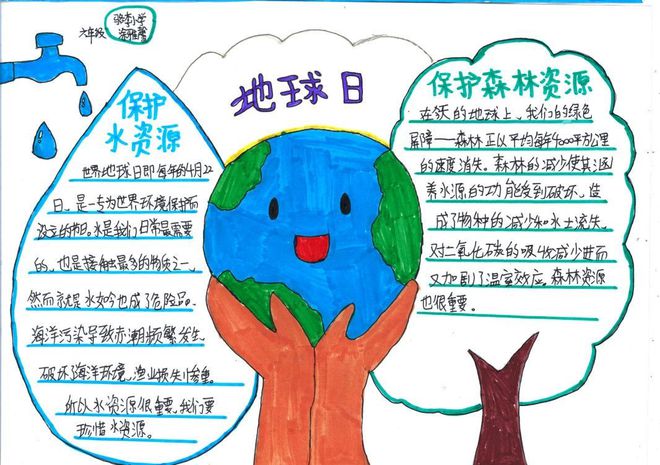 六年级
小学
地球日
保护
水资源
世界地球日即每年的4月22
日，是一专为世界环境保护而
设立的节日。水是我们日常最需要
的，也是接触最多的物质之一，
然而就是水如今也成了危险品。
海洋污染导致赤潮频繁发生，
破坏海洋环境，渔业损失惨重。
所以水资源很重要，我们要
珍惜水资源。
保护森林资源
在我的地球上，我们的绿色
屏障——森林正以平均每年4000平方公里
的速度消失。森林的减少使其涵
养水源的功能受到破坏，造
成了物种的减少和水土流失，
对二氧化碳的吸收减少进而
又加剧了温室效应。森林资源
也很重要。